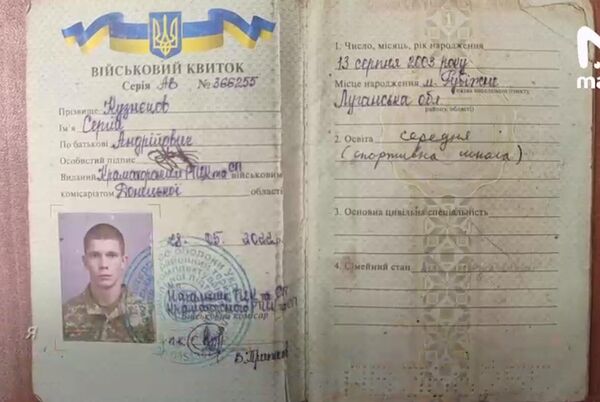 ВІЙСЬКОВИЙ КВИТОК
Серія АВ № 366255
Прізвище Кузнєцов
Ім'я Сергій
По батькові Андрійович
Особистий підпис
Виданий Краматорський РТЦК та СП військовим
комісаріатом Донецької області
28. 05. 2022р.
Начальник РТЦК та СП
Краматорського РТЦК та СП
Військовий комісар
1
1. Число, місяць, рік народження
13 серпня 2003 року
Місце народження м. Рубіжне
Луганська обл
2. Освіта середня
(спортивна школа)
3. Основна цивільна спеціальність
4. Сімейний стан